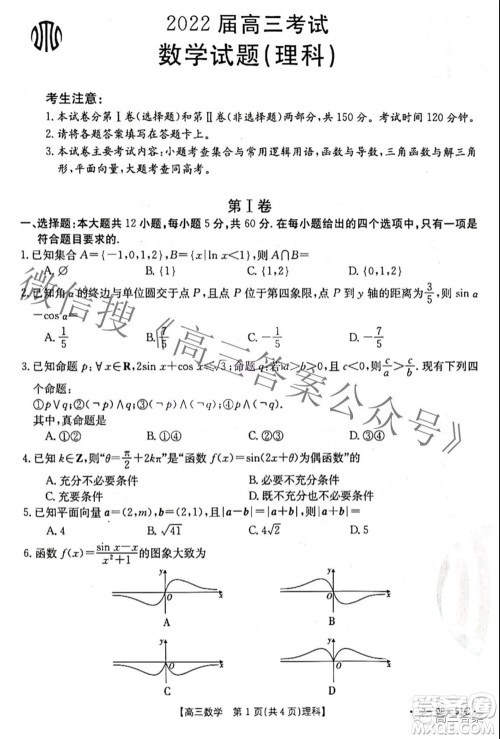 2022 届高三考试
数学试题(理科)
考生注意:
1.本试卷分第Ⅰ卷(选择题)和第Ⅱ卷(非选择题)两部分,共 150 分。考试时间 120 分钟。
2.请将各题答案填写在答题卡上。
3.本试卷主要考试内容:小题考查集合与常用逻辑用语,函数与导数,三角函数与解三角
形,平面向量,大题考查同高考。
第Ⅰ卷
一、选择题:本大题共 12 小题,每小题 5 分,共 60 分.在每小题给出的四个选项中,只有一项是
符合题目要求的.
1.已知集合 A={-1,0,1,2},B={x|ln x<1},则 A∩B=
A.∅ B.{1} C.{1,2} D.{0,1,2}
2.已知角α的终边与单位圆交于点 P,且点 P 到 x 轴的距离为4/5,到 y 轴的距离为3/5,则 sin α
-cos α=
A.1/5 B.7/5 C.-1/5 D.-7/5
3.已知命题 p:∀x∈R,2sin x+cos x≤√3;命题 q:若 a>b,则c/a>c/b.现有下列四
个命题:
①p∨q;②(¬p)∧q;③p∧(¬q);④(¬p)∧(¬q).
其中,真命题是
A.①② B.①④ C.③ D.④
4.已知 k∈Z,则"θ=π/2+2kπ"是"函数 f(x)=sin(2x+θ)为偶函数"的
A.充分不必要条件 B.必要不充分条件
C.充要条件 D.既不充分也不必要条件
5.已知平面向量 a=(2,m),b=(2,1),且|a-b|=|a+b|,则|a-b|=
A.4 B.√41 C.4√2 D.5
6.函数 f(x)=(sin x-x)/(x²+1)的图象大致为
y
O
x
A
y
O
x
B
y
O
x
C
y
O
x
D
【高三数学 第 1 页(共 4 页)理科】
微信搜《高三答案公众号》
高三答案